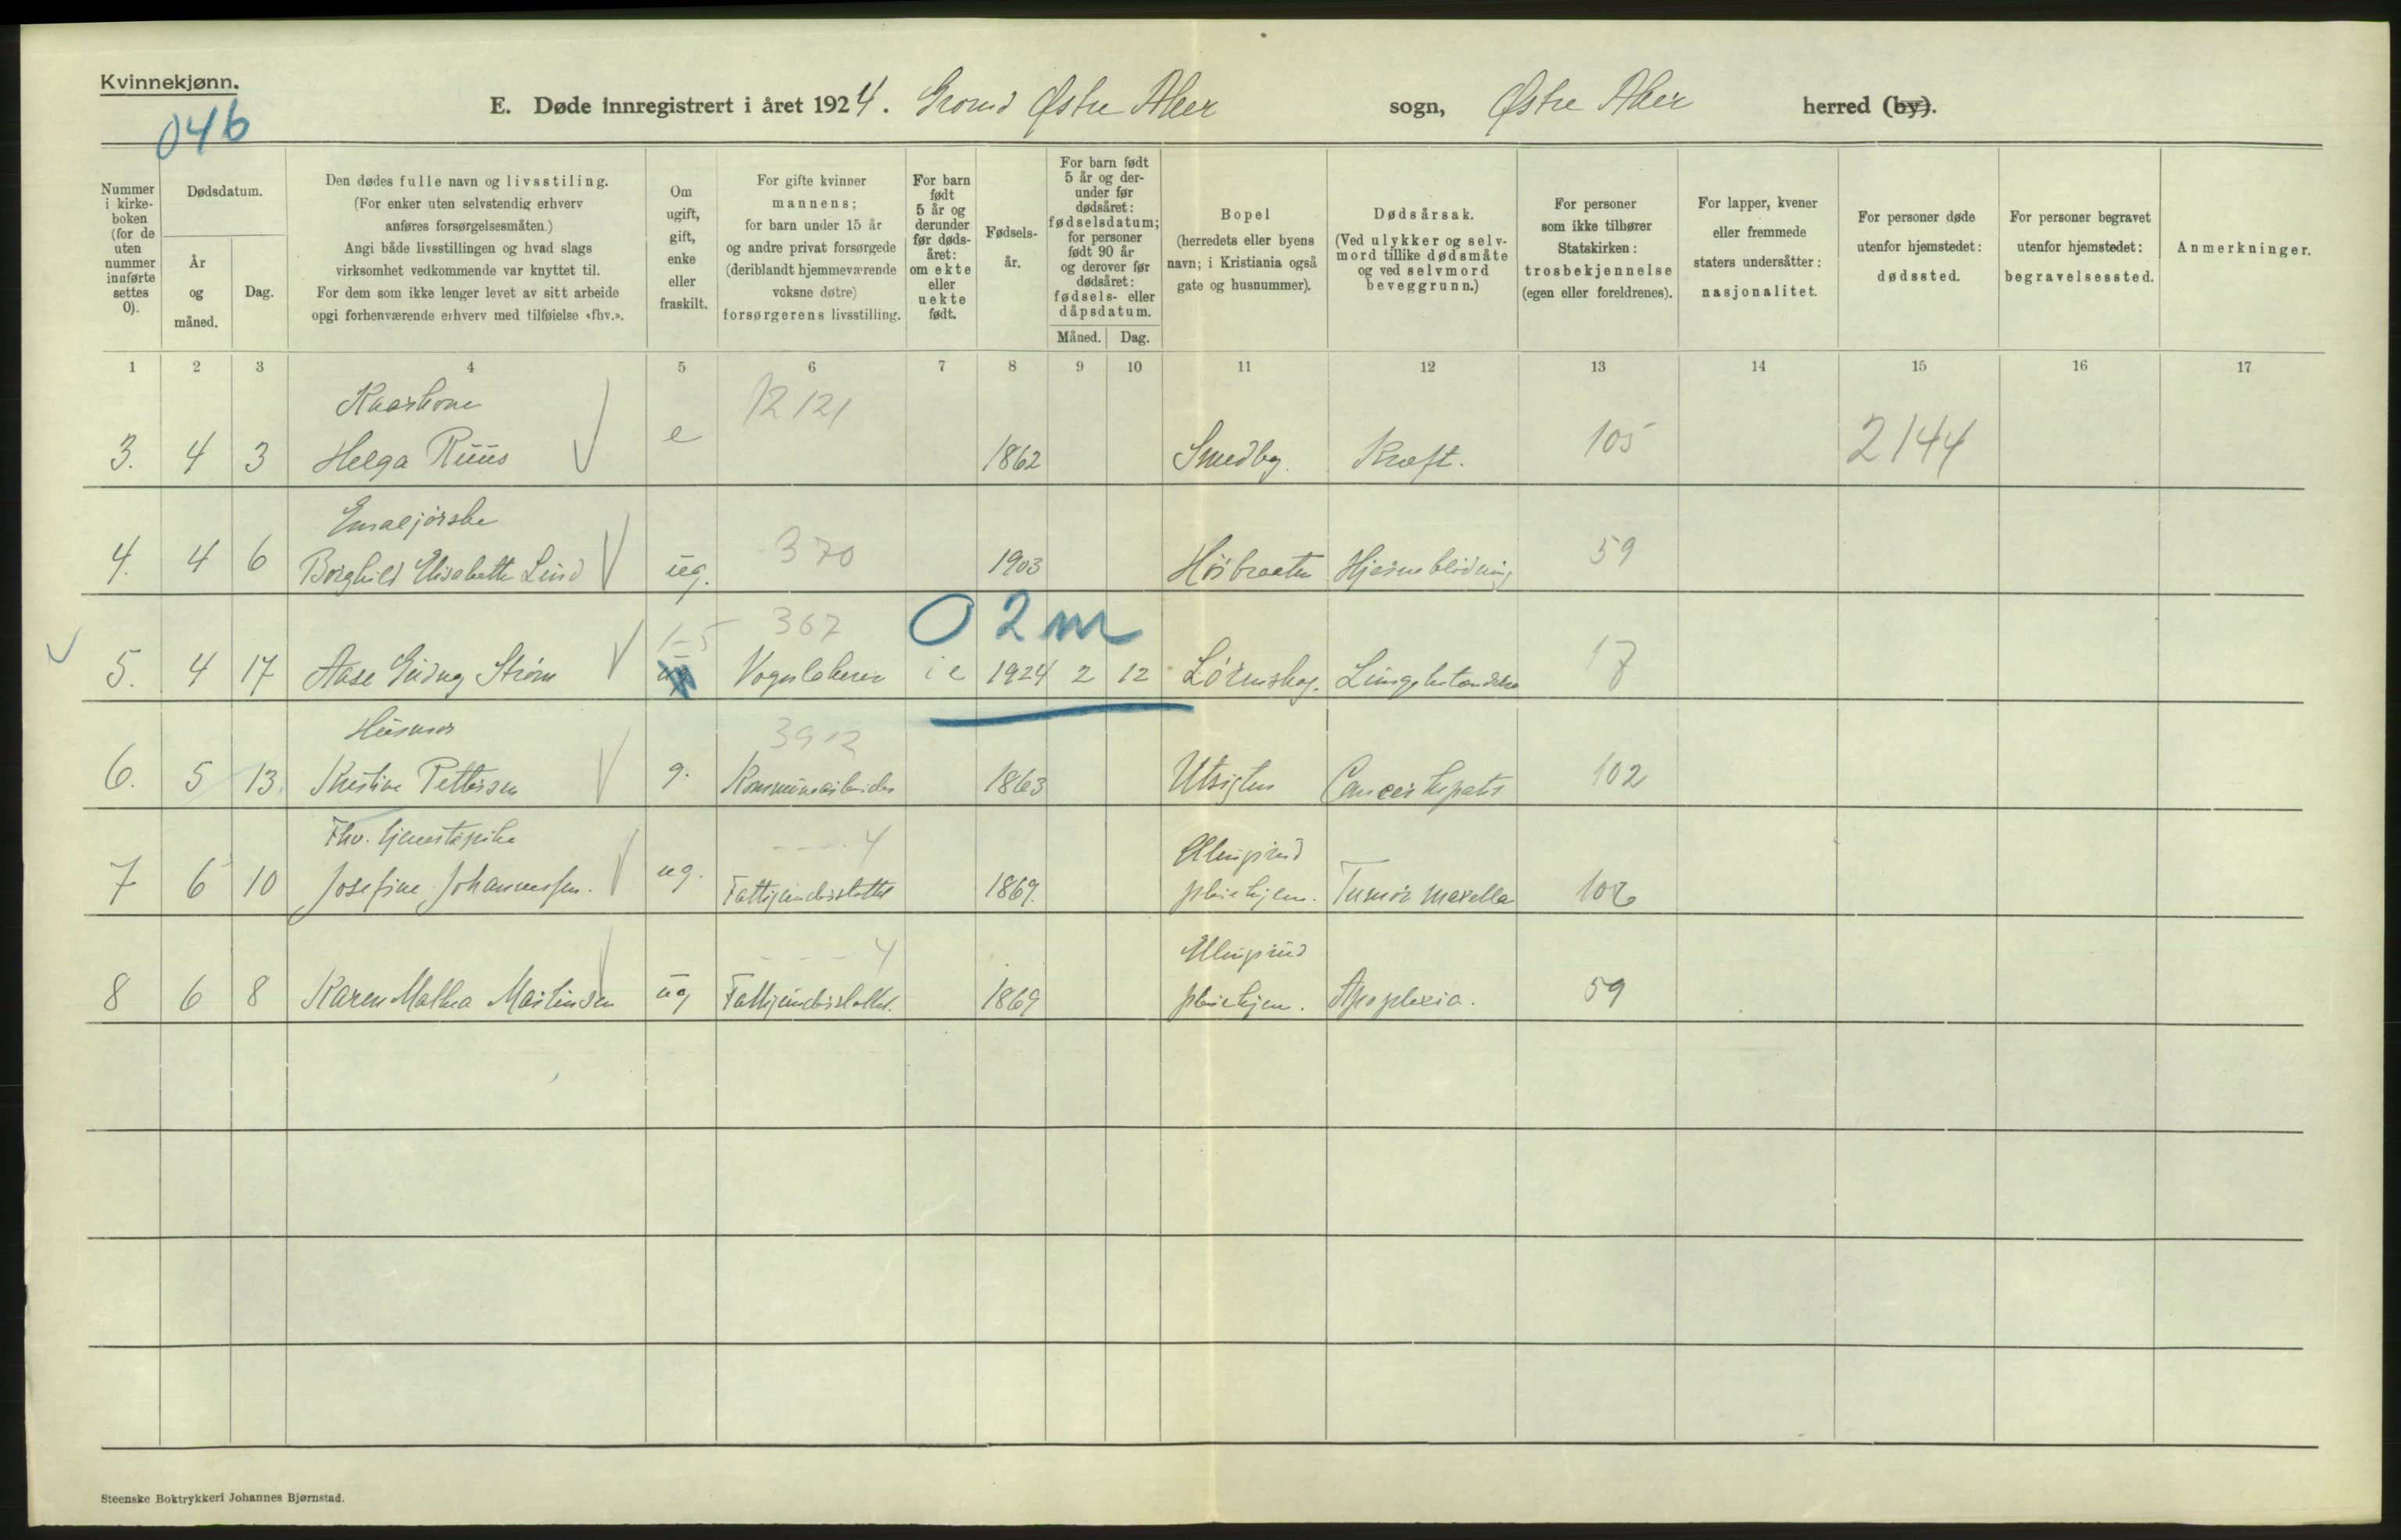 Kvinnekjønn.
046
E. Døde innregistrert i året 1924. Grorud Østre Aker sogn, Østre Aker herred (by).
Nummer i kirke-boken (for de uten nummer innførte settes 0).
Dødsdatum.
År og måned.
Dag.
Den dødes fulle navn og livsstiling.
(For enker uten selvstendig erhverv
anføres forsørgelsesmåten.)
Angi både livsstillingen og hvad slags
virksomhet vedkommende var knyttet til.
For dem som ikke lenger levet av sitt arbeide
opgi forhenværende erhverv med tilføielse «fhv.».
Om ugift, gift, enke eller fraskilt.
For gifte kvinner
mannens;
for barn under 15 år
og andre privat forsørgede
(deriblandt hjemmeværende
voksne døtre)
forsørgerens livsstilling.
For barn født 5 år og derunder før døds-året: om ekte eller uekte født.
Fødsels-år.
For barn født
5 år og der-
under før
dødsåret:
fødselsdatum;
for personer
født 90 år
og derover før
dødsåret:
fødsels- eller
dåpsdatum.
Måned. Dag.
Bopel
(herredets eller byens
navn; i Kristiania også
gate og husnummer).
Dødsårsak.
(Ved ulykker og selv-
mord tillike dødsmåte
og ved selvmord
beveggrunn.)
For personer
som ikke tilhører
Statskirken:
trosbekjennelse
(egen eller foreldrenes).
For lapper, kvener
eller fremmede
staters undersåtter:
nasjonalitet.
For personer døde
utenfor hjemstedet:
dødssted.
For personer begravet
utenfor hjemstedet:
begravelsessted.
Anmerkninger.
1 2 3 4 5 6 7 8 9 10 11 12 13 14 15 16 17
12121
3. 4 3 Helga Ruus e 1862 Smedby. Kræft. 105 2144
370
4. 4 6 Borghild Elisabeth Lund ug. 1903 Høibraaten Hjerneblødning 59
1-5 367 0 2 m
5. 4 17 Aase Gudny Strøm Vognlakerer i e 1924 2 12 Lørenskog. Lungebetændelse 17
Husmor 3912
6. 5 13. Kristine Pettersen g. Kommunearbeider 1863 Utsigten Cancer hepatis 102
Fhv. tjenestepike 4 Ellingsrud
7 6 10 Josefine Johannessen. ug. Fattigunderstøttet 1869. pleiehjem. Tumor maxella
4 Ellingsrud
8 6 8 Karen Mathea Martinsen ug Fattigunderstøttet. 1869 pleiehjem. Apoplexia. 59
Steenske Boktrykkeri Johannes Bjørnstad.